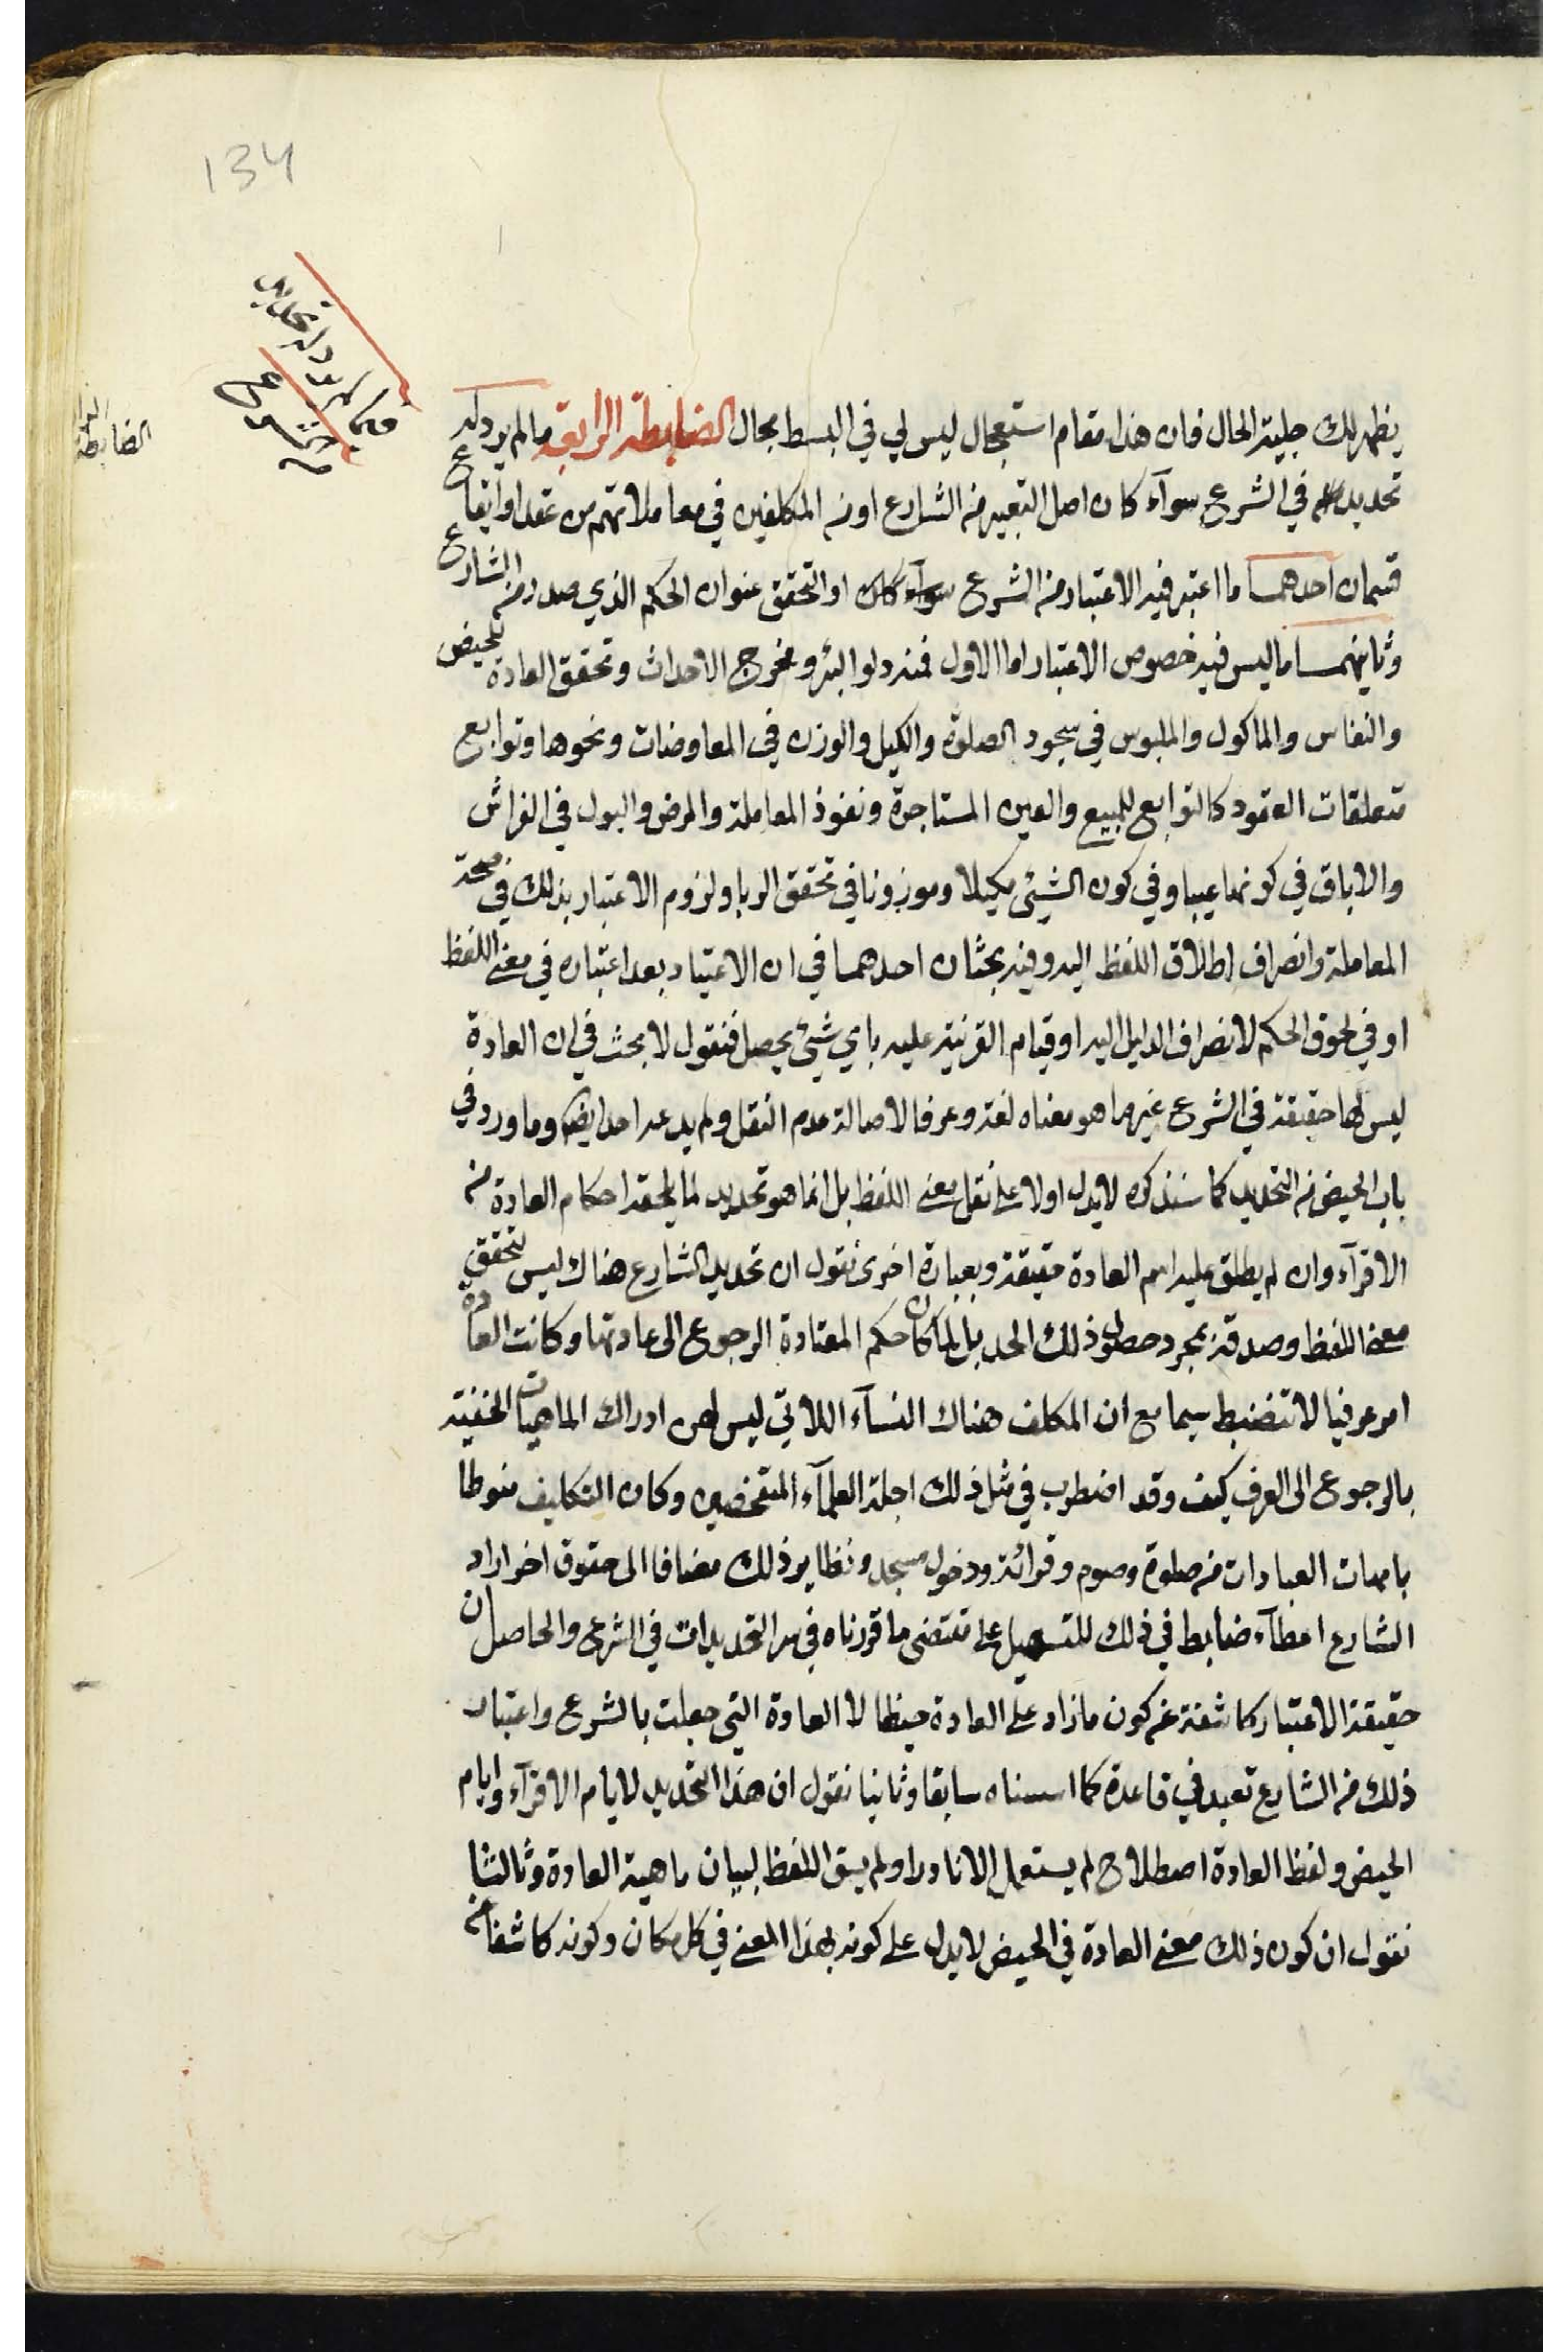 134
فيما لم يرد له تحديد
في الشرع
الضابطة
يظهر لك جلية الحال فان هذا مقام استعجال ليس لي في البسط بحال الضابطة الرابعة ما لم يرد له
تحديد في الشرع سوآء كان اصل التعبير من الشارع او من المكلفين في معاملاتهم من عقد او ايقاع
قسمان احدهما ما اعتبر فيه الاعتياد من الشرع سوآء كان او التحقق عنوان الحكم الذي صدر من الشارع
وثانيهما ما ليس فيه خصوص الاعتياد اما الاول فمنه دلو البئر ومخرج الاحداث وتحقق العادة للحيض
والنفاس والماكول والملبوس في سجود الصلوة والكيل والوزن في المعاوضات ونحوها وتوابع
متعلقات العقود كالتوابع للمبيع والعين المستاجرة ونفوذ المعاملة والمرض والبول في الفراش
والاباق في كونها عيبا وفي كون الشيئ مكيلا وموزونا في تحقق الربا ولزوم الاعتبار بذلك في صحة
المعاملة وانصراف اطلاق اللفظ اليه وفيه بحثان احدهما في ان الاعتياد بعد اعتباره في معنى اللفظ
او في لحوق الحكم لانصراف الدليل اليه او قيام القرنية عليه باي شيئ يحصل فنقول لا بحث في ان العادة
ليس لها حقيقة في الشرع غير ما هو معناه لغة وعرفا لاصالة عدم النقل ولم يدعه احد ايضا وما ورد في
باب الحيض من التحديد كما سنذكره لا يدل اولا على نقل معنى اللفظ بل انما هو تحديد لما يلحقه احكام العادة من
الاقرآء وان لم يطلق عليه اسم العادة حقيقة وبعبارة اخرى نقول ان تحديد الشارع هناك ليس لتحقق
معنى اللفظ وصدقه بمجرد حصول ذلك الحد بل لما كان حكم المعتادة الرجوع الى عادتها وكانت العادة
امر عرفيا لا تنضبط سيما مع ان المكلف هناك النسآء اللاتي ليس لهن ادراك الماهيات الخفية
بالرجوع الى العرف كيف وقد اضطرب في مثل ذلك اجلة العلمآء المتفحصين وكان التكليف منوطا
بامهات العبادات من صلوة وصوم وقرائة ودخول مسجد ونظاير ذلك مضافا الى حقوق اخر اراد
الشارع اعطآء ضابط في ذلك للتسهيل على مقتضى ما قررناه في سر التحديدات في الشرع والحاصل ان
حقيقة الاعتياد كاشفة عن كون ما زاد على العادة حيضا لا العادة التي جعلت بالشرع واعتبار
ذلك من الشارع تعبد في قاعدة كما اسسناه سابقا وثانيا نقول ان هذا التحديد لايام الاقرآء وايام
الحيض ولفظ العادة اصطلاح لم يستعمل الا نادرا ولم يسق اللفظ لبيان ماهية العادة وثالثا
نقول ان كون ذلك معنى العادة في الحيض لا يدل على كونه بهذا المعنى في كل مكان وكونه كاشفا عن